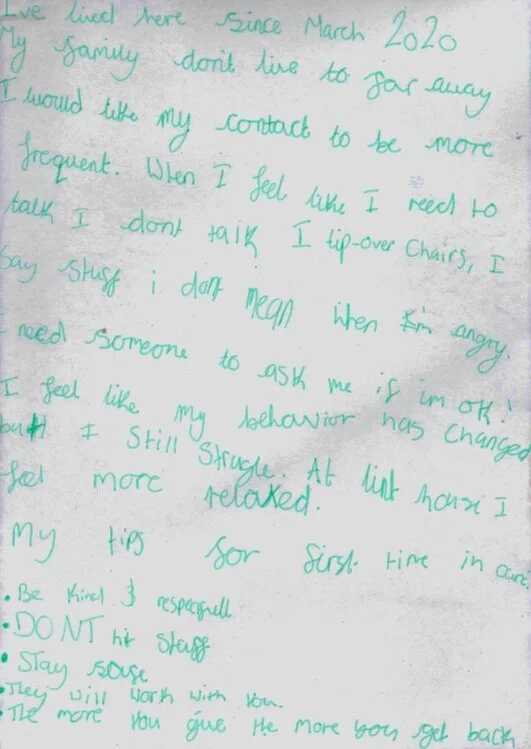 I've lived here since March 2020
My family don't live to far away
I would like my contact to be more
frequent. When I feel like I need to
talk I dont talk I tip-over Chairs, I
Say Stuff i dont mean when I'm angry.
I need someone to ask me if im ok!
I feel like my behavior has changed
but I Still Strugle. At lint house I
feel more relaxed.
My tips for first time in care:
• Be Kind & respecfull
• DONT hit Staff
• Stay safe
• They will work with you.
• The more you give the more you get back